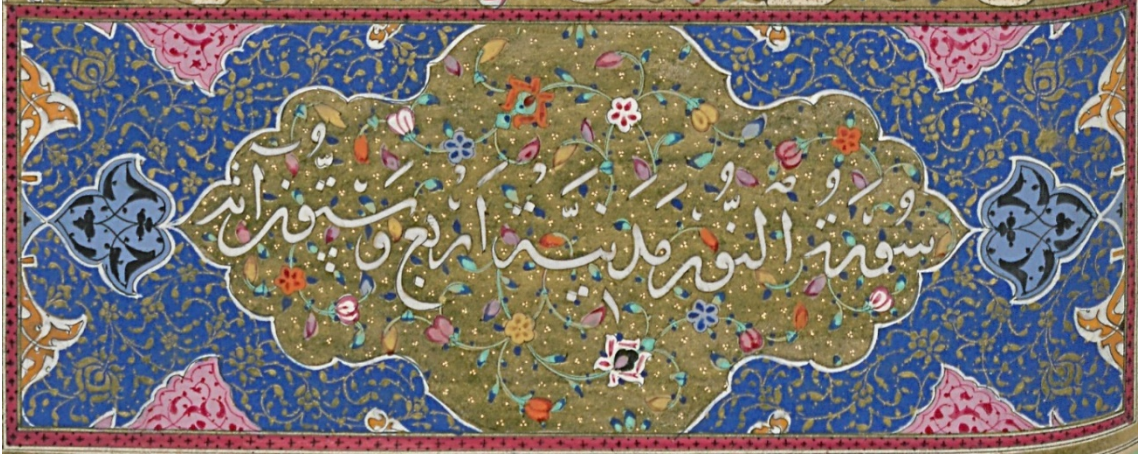 سُوْرَةُ النُّوْرِ مَدَنِيَّةٌ اَرْبَعٌ وَسِتُّوْنَ آيَةً